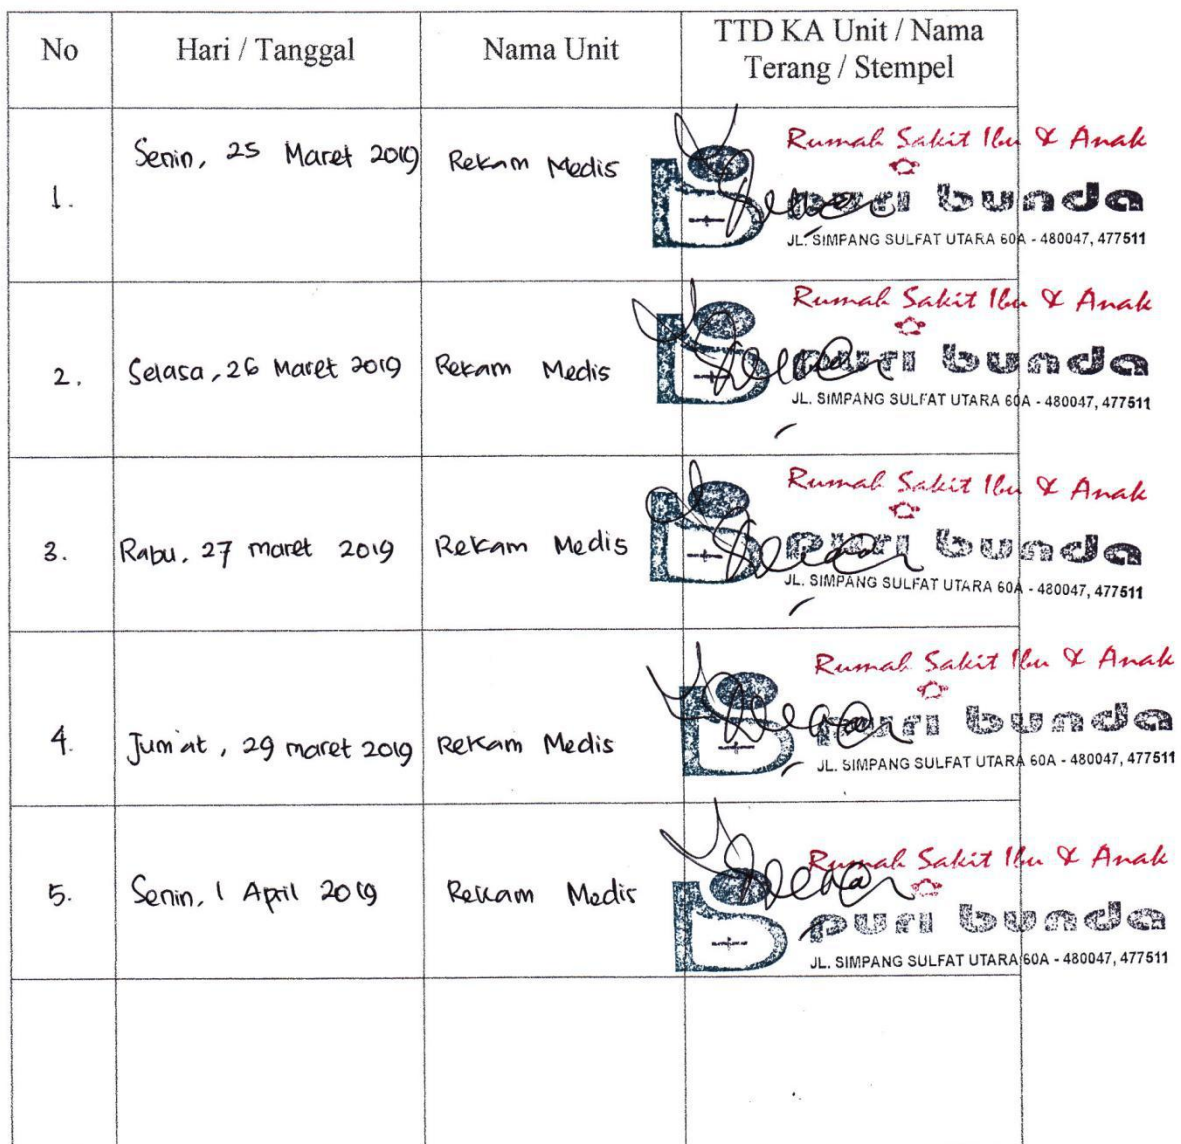 No
Hari / Tanggal
Nama Unit
TTD KA Unit / Nama
Terang / Stempel
1.
Senin, 25 Maret 2019
Rekam Medis
Rumah Sakit Ibu & Anak
puri bunda
JL. SIMPANG SULFAT UTARA 60A - 480047, 477511
2.
Selasa, 26 Maret 2019
Rekam Medis
Rumah Sakit Ibu & Anak
puri bunda
JL. SIMPANG SULFAT UTARA 60A - 480047, 477511
3.
Rabu, 27 maret 2019
Rekam Medis
Rumah Sakit Ibu & Anak
puri bunda
JL. SIMPANG SULFAT UTARA 60A - 480047, 477511
4.
Jum'at, 29 maret 2019
Rekam Medis
Rumah Sakit Ibu & Anak
puri bunda
JL. SIMPANG SULFAT UTARA 60A - 480047, 477511
5.
Senin, 1 April 2019
Rekam Medis
Rumah Sakit Ibu & Anak
puri bunda
JL. SIMPANG SULFAT UTARA 60A - 480047, 477511